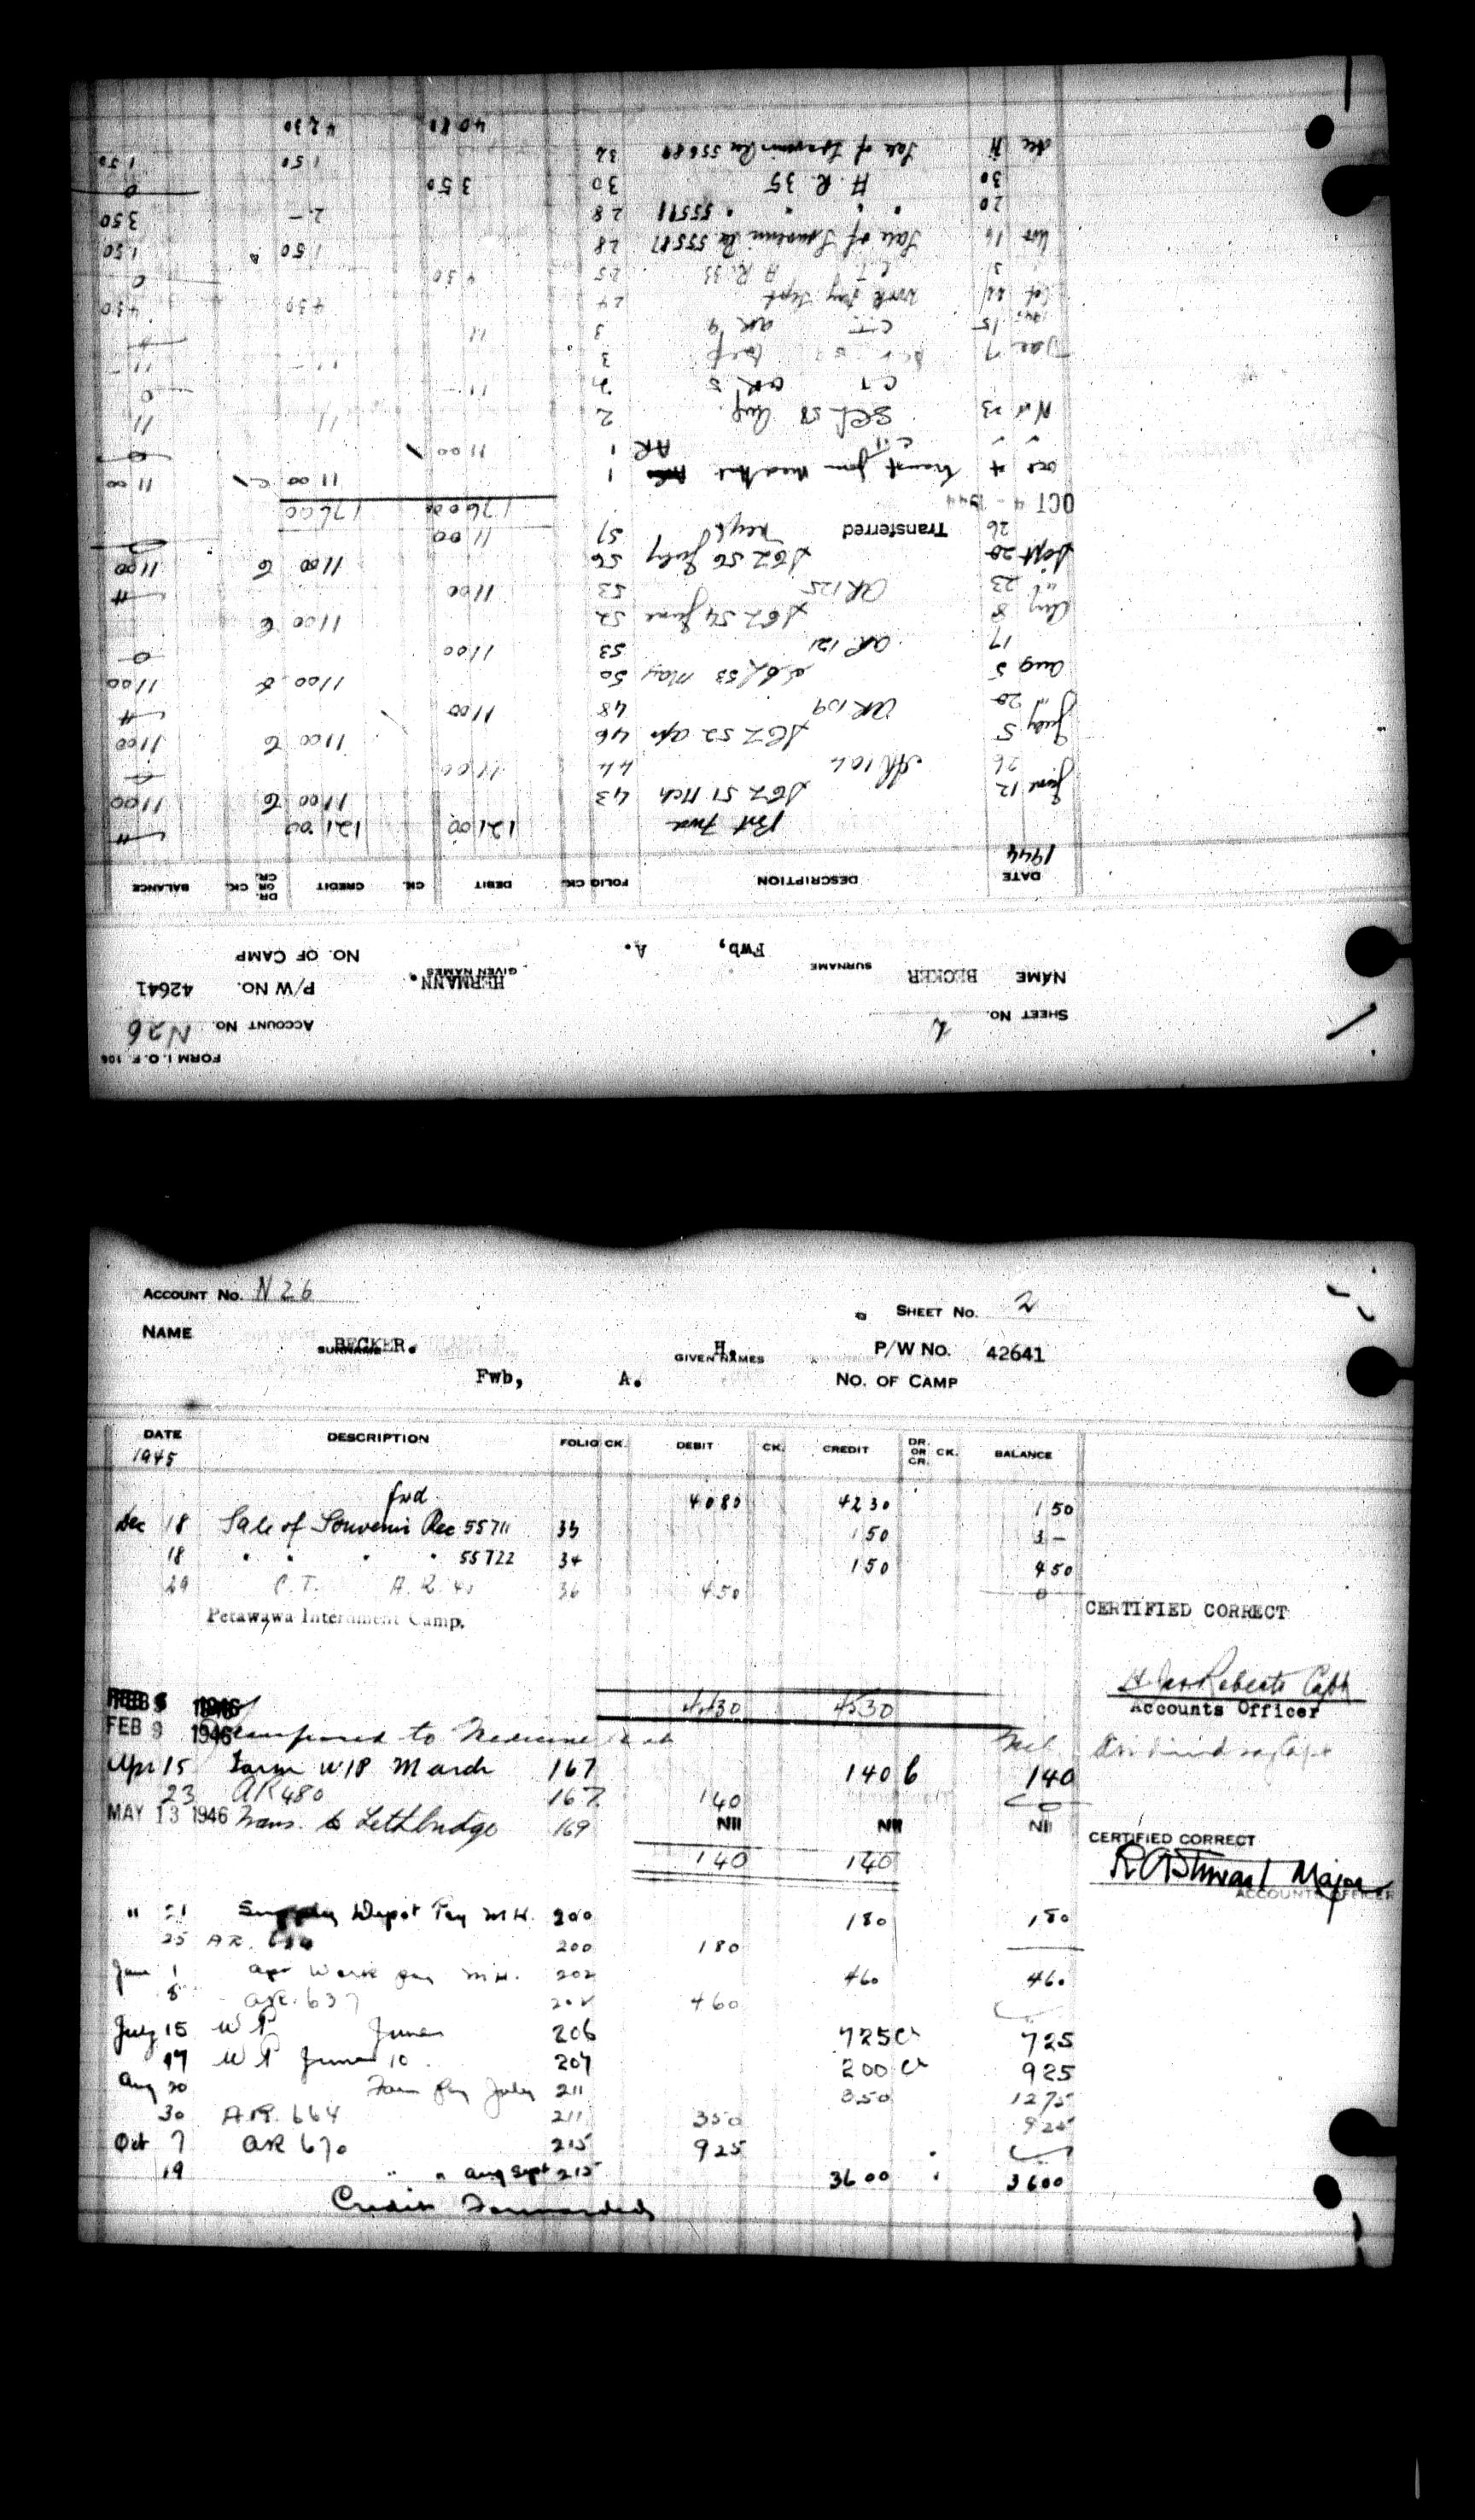 FORM I.O.F. 106
ACCOUNT NO. N26
SHEET NO. 2
P/W NO. 42641
NAME BECKER HERMANN.
SURNAME GIVEN NAMES
NO. OF CAMP
Fwb, A.
DATE DESCRIPTION FOLIO CK. DEBIT CK. CREDIT DR. OR CR. CK. BALANCE
1944
Brt Fwd 121 00 121 00
June 12 51 Mch 43 11 00 11 00
26 AR 104 44 11 00
July 5 52 apr 46 11 00 11 00
20 AR 109 48 11 00
Aug 5 53 May 50 11 00 11 00
17 AR 121 53 11 00 0
Aug 8 54 June 52 11 00
23 AR 125 53 11 00
Sept 20 56 July 56 11 00 11 00
26 Transferred 57 11 00
176 00 176 00
OCT 4 - 1944
Oct 4 1 11 00 11 00
C.T. AR 1 11 00 0
Nov 23 58 Aug 2 11 11
C T AR 5 2 11 — 0
Dec 7 3 11 — 11 —
1945 15 C.T. AR 9 3 11
Oct 22 Work Pay Sept 24 4 30 4 30
C.T. A R. 33 25 4 30 0
Nov 16 Sale of Souvenir Re 55587 28 1 50 1 50
20 " " " 55598 28 2 — 3 50
30 A. R. 35 30 3 50 0
Dec 11 Sale of Souvenir Re 55689 32 1 50 1 50
40 80 42 30
ACCOUNT NO. N 26
SHEET NO. 2
NAME BECKER. H. P/W NO. 42641
SURNAME GIVEN NAMES
Fwb, A. NO. OF CAMP
DATE DESCRIPTION FOLIO CK. DEBIT CK. CREDIT DR. OR CR. CK. BALANCE
1945
fwd. 40 80 42 30 1 50
Dec 18 Sale of Souvenir Rec 55711 33 1 50 3 —
18 " " " " 55722 34 1 50 4 50
29 C.T. A.R. 40 36 4 50 0
Petawawa Internment Camp. CERTIFIED CORRECT
Roberts Capt
Accounts Officer
FEB 1946 45 30 45 30
FEB 9 1946 to Medicine Hat Nil
Apr 15 Farm W18 March 167 1 40 1 40
23 AR 480 167 1 40 0
MAY 13 1946 Trans. to Lethbridge 169 Nil Nil Nil
CERTIFIED CORRECT
1 40 1 40
Major
ACCOUNTS OFFICER
" 21 Supply Depot Pay M.H. 200 1 80 1 80
25 AR. 200 1 80
June 1 Apr Work pay M.H. 202 4 60 4 60
8 AR. 637 202 4 60
July 15 W P June 206 7 25 Cr 7 25
17 W P June 10 207 2 00 Cr 9 25
Aug 20 Farm Pay July 211 3 50 12 75
30 A.R. 664 211 3 50 9 25
Oct 7 AR 670 215 9 25
19 " " Aug Sept 215 36 00 36 00
Credit Forwarded